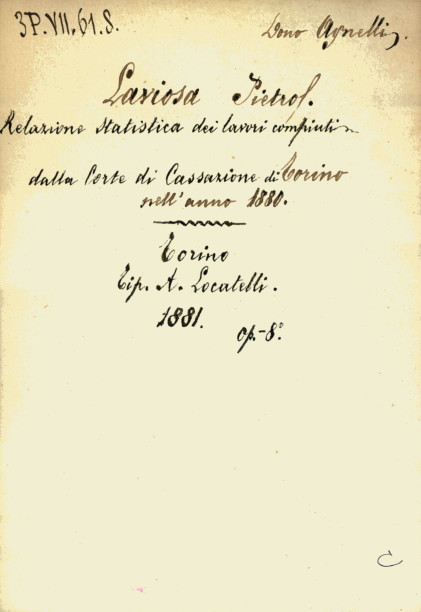 3P.VII.61.8.
Dono Agnelli
Laviosa Pietro f.
Relazione statistica dei lavori compiuti
dalla Corte di Cassazione di Torino
nell'anno 1880.
Torino
Tip. A. Locatelli.
1881.
op.-8°
C